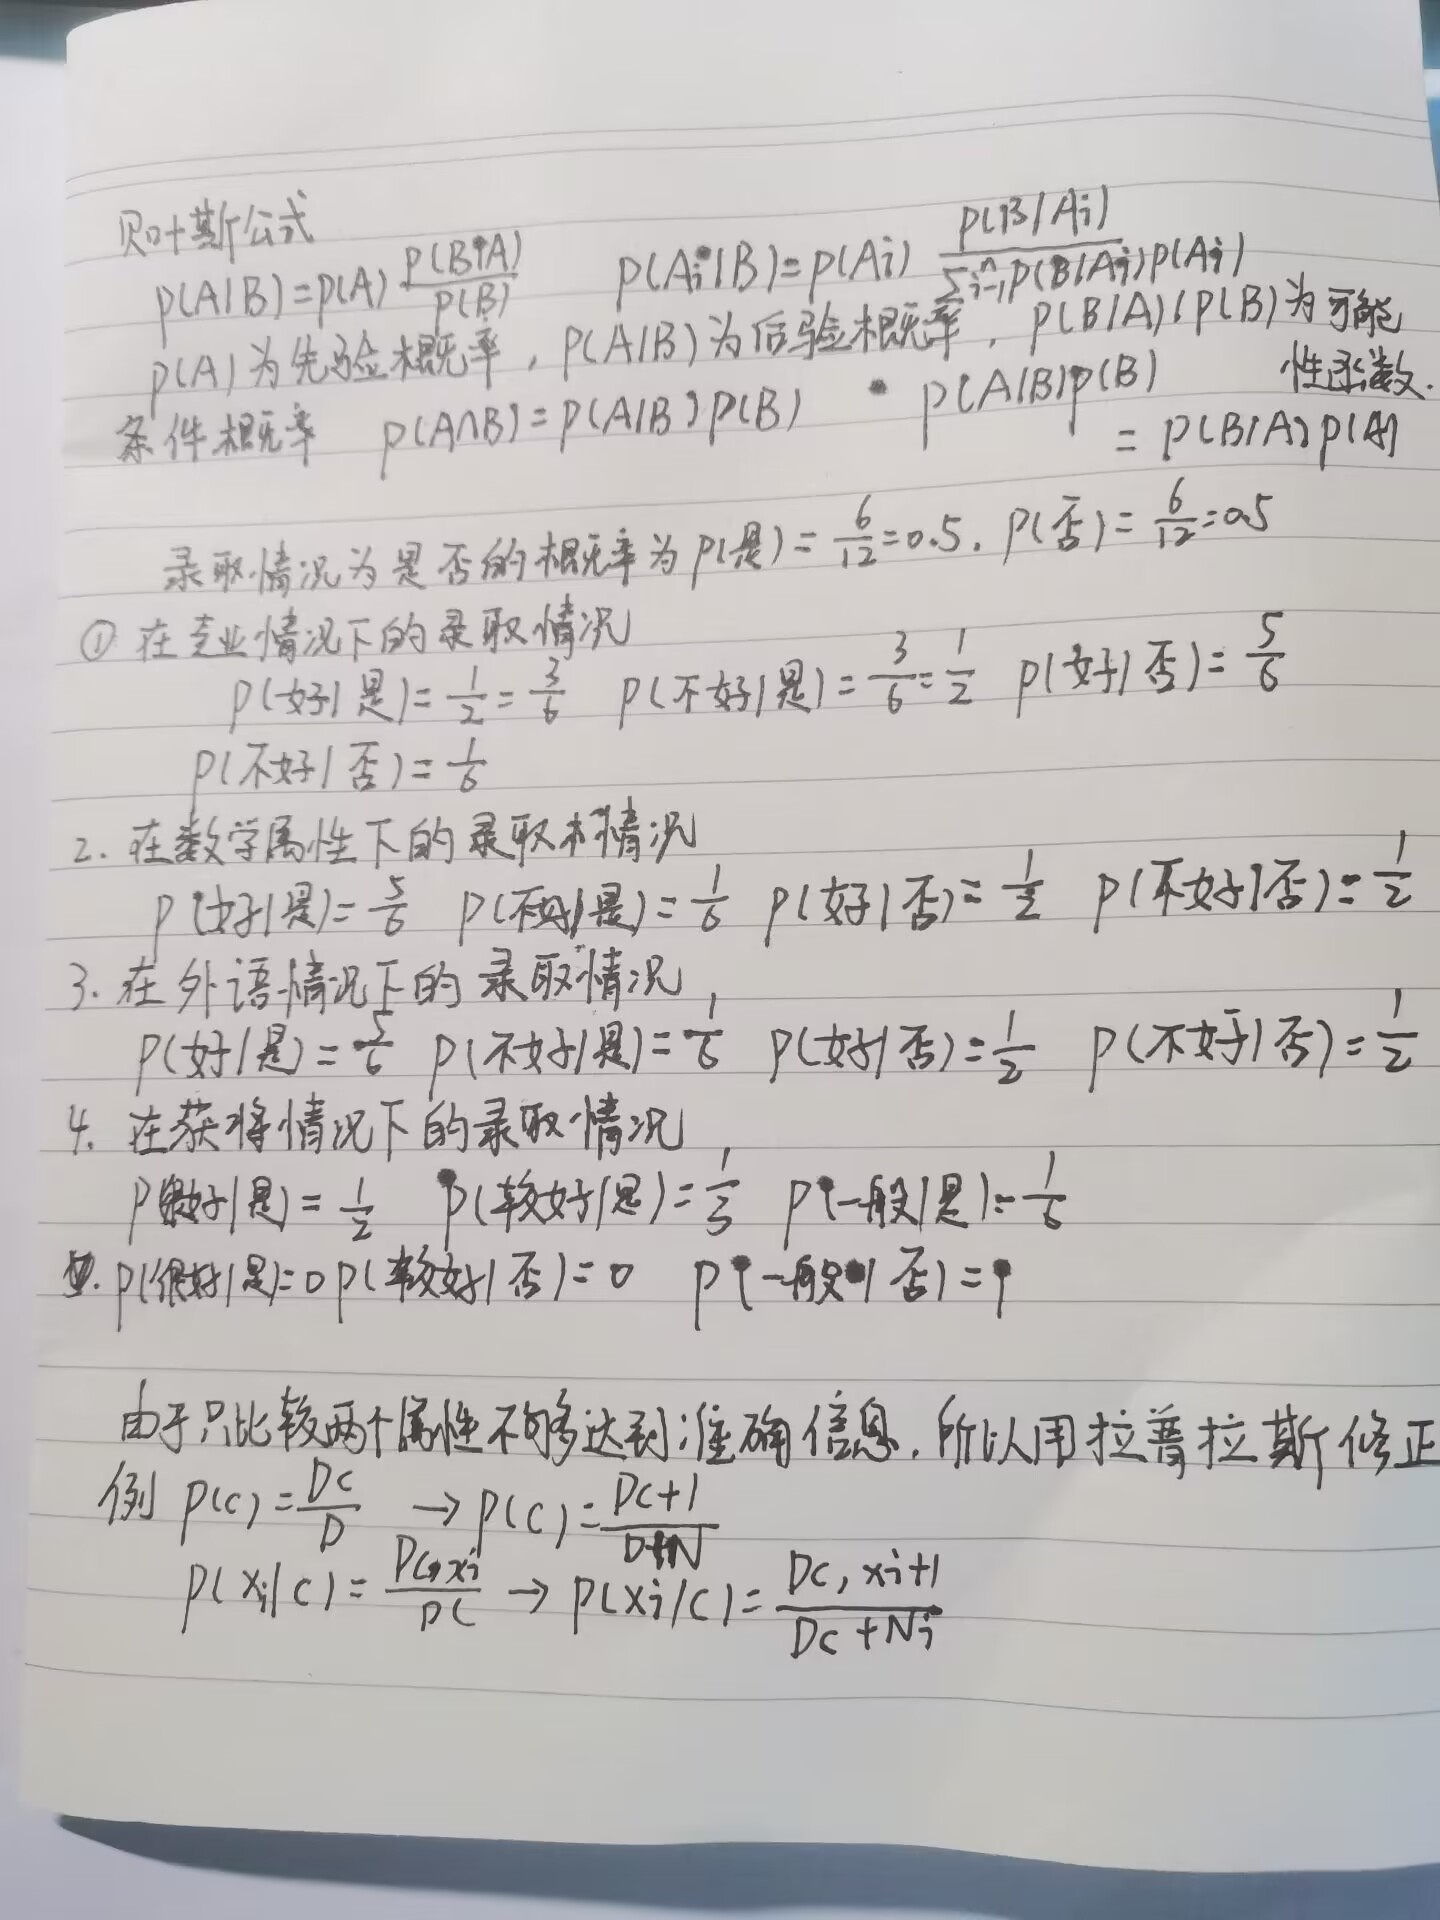 贝叶斯公式
P(A|B)=P(A) P(B|A)/P(B)  P(Ai|B)=P(Ai) P(B|Ai)/∑ⁿi=1P(B|Ai)P(Ai)
P(A)为先验概率，P(A|B)为后验概率，P(B|A)/P(B)为可能性函数.
条件概率 P(A∩B)=P(A|B)P(B)  P(A|B)P(B)
=P(B|A)P(A)
录取情况为是否的概率为P(是)=6/12=0.5. P(否)=6/12=0.5
① 在专业情况下的录取情况
P(好|是)=1/2=3/6 P(不好|是)=3/6=1/2 P(好|否)=5/6
P(不好|否)=1/6
2. 在数学属性下的录取情况
P(好|是)=5/6 P(不好|是)=1/6 P(好|否)=1/2 P(不好|否)=1/2
3. 在外语情况下的录取情况,
P(好|是)=5/6 P(不好|是)=1/6 P(好|否)=1/2 P(不好|否)=1/2
4. 在获将情况下的录取情况,
P(很好|是)=1/2 P(较好|是)=1/3 P(一般|是)=1/6
P(很好|是)=0 P(较好|否)=0 P(一般|否)=1
由于只比较两个属性不够达到准确信息.所以用拉普拉斯修正
例 P(c)=Dc/D → P(c)=Dc+1/D+N
P(xi|c)=Dc,xi/Dc → P(xi|c)=Dc,xi+1/Dc+Ni